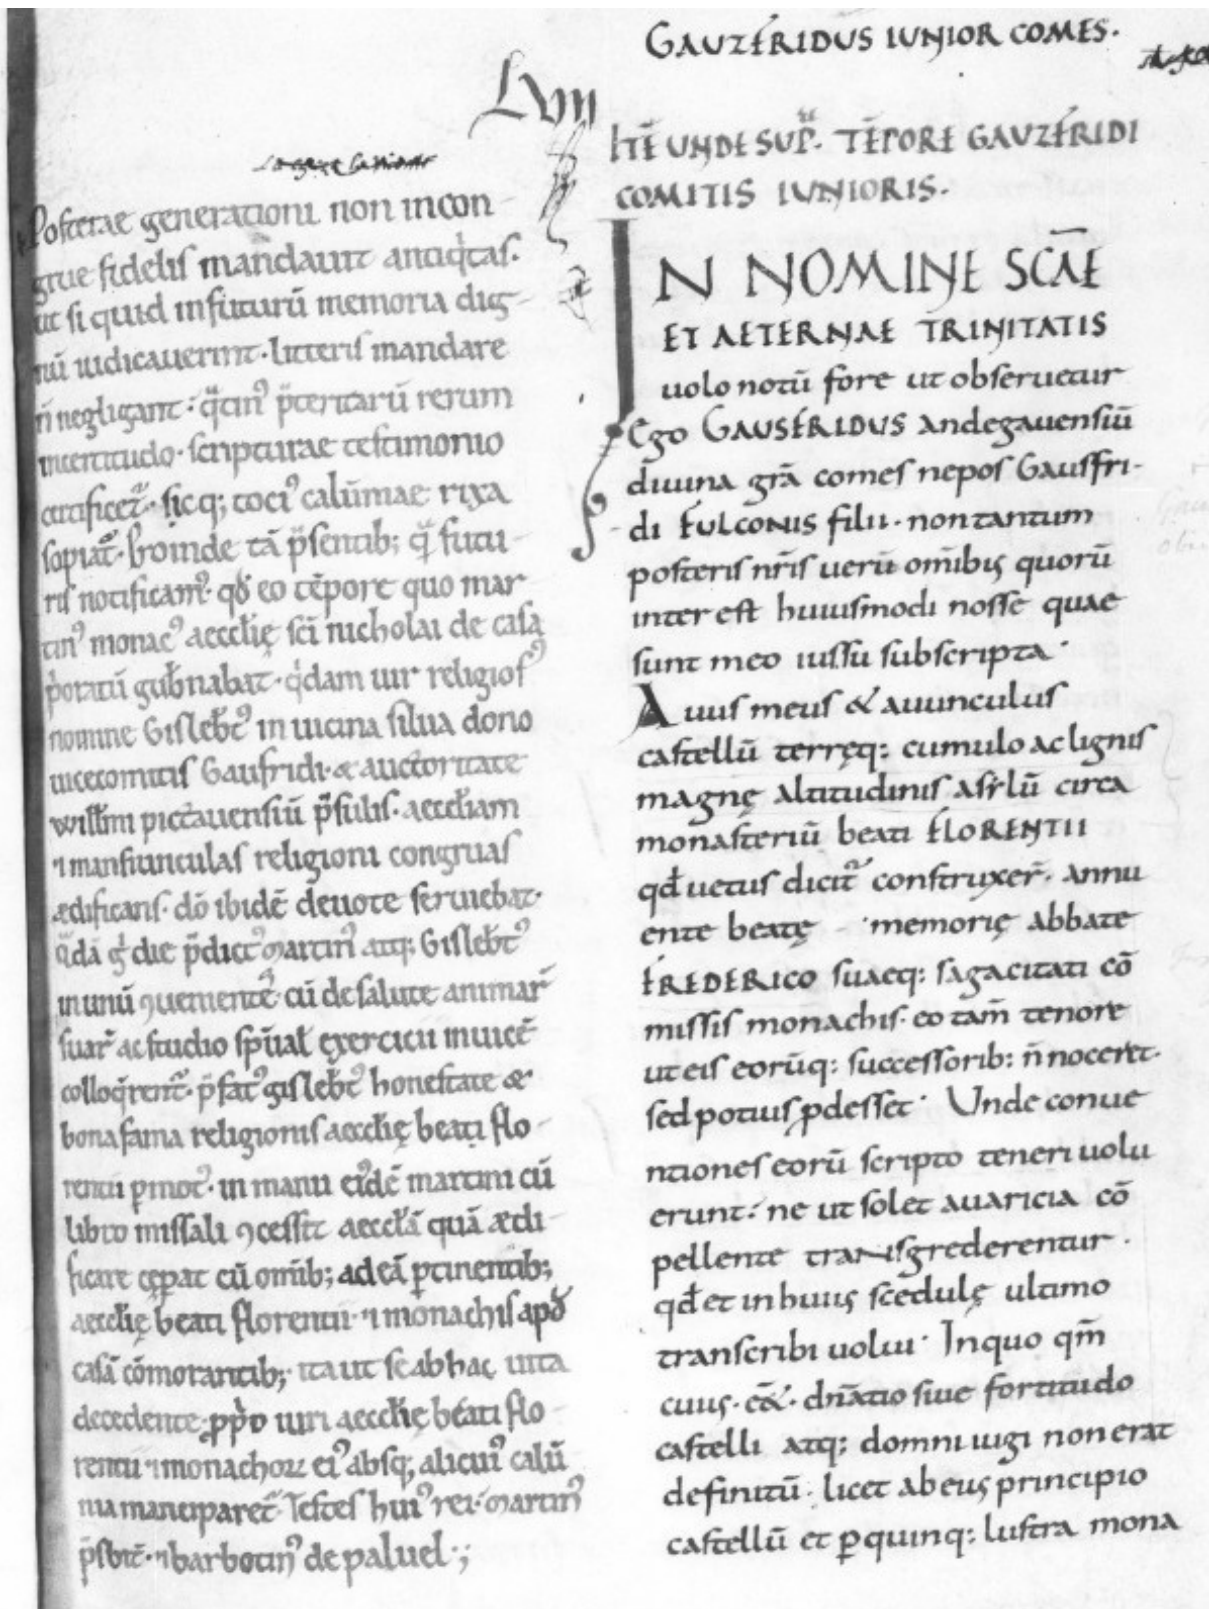 LVIII
Posterae generationi non incon-
grue fidelis mandauit antiq̇tas.
ut si quid in futurū memoria dig-
nū iudicauerint· litteris mandare
n̄ negligant· q̄tin᾽ p̄teritarū rerum
incertitudo· scripturae testimonio
certificet᷑· sicq; toci᾽ calūmae rixa
sopiat᷑· Proinde tā p̄sentib; q̄ futu-
ris notificam᾽· qd̄ eo tēpore quo mar-
tin᾽ monac᾽ aecclię sc̄i nicholai de casa
p̍oratū gub̄nabat· q̍dam uir religios᾽
nomine Gisleb̄t᾽ in uicina silua dono
uicecomitis Gaufridi· & auctoritate
will̄mi pictauensiū p̄sulis· aeccl̄iam
⁊ mansiunculas religioni congruas
ædificans· dō ibidē deuote seruiebat·
q̄dā g̍ die p̄dict᾽ Martin᾽ atq; Gisleb̄t᾽
in unū ꝯuenientē cū de salute animar̄
suar̄ ac studio sp̄ual̄ exercicii inuicē
colloq̄rent᷑· p̄fat᾽ gisleb̄t᾽ honestate &
bona fama religionis aecclię beati flo-
rentii ꝑmot᾽· in manu ei᾽dē martini cū
libro missali ꝯcessit aeccl̄ā quā ædi-
ficare cęperat cū omīb; ad eā ꝑtinentib;
aecclię beati florentii ⁊ monachis apd̄
casā cōmorantib; ita ut se ab hac uita
decedente ꝓp̍o iuri aecclię beati flo-
rentii ⁊ monachoꝝ ei᾽ absq; alicui᾽ calū-
nia manciparet᷑· Testes hui᾽ rei· Martin᾽
p̄sbit̄· ⁊ barbotin᾽ de paluel·;
GAUZFRIDUS IUNIOR COMES·
ITĒ UNDE SUP̄· TĒPORE GAUZFRIDI
COMITIS IUNIORIS·
IN NOMINE SC̄AE
ET AETERNAE TRINITATIS
uolo notū fore ut obseruetur
Ego GAUSFRIDUS andegauensiū
diuina gr̄a comes nepos Gausfri-
di FULCONIS filii· non tantum
posteris nr̄is uerū om̄ibus quorū
inter est huiusmodi nosse quae
sunt meo iussu subscripta·
Auus meus & auunculus
castellū terręq: cumulo ac lignis
magnę altitudinis asylū circa
monasteriū beati FLORENTII
qd̄ uetus dicit᷑ construxer̄· annu
ente beatę memorię abbate
FREDERICO suaeq: sagacitati cō
missis monachis· eo tam̄ tenore
ut eis eorūq: successorib: n̄ noceret·
sed potius ꝓdesset· Unde conue
ntiones eorū scripto teneri uolu
erunt· ne ut solet auaricia cō
pellente transgrederentur·
qd̄ et in huius scedulę ultimo
transcribi uolui· In quo qm̄
cuius· eēt· dn̄atio siue fortitudo
castelli atq; domniugi non erat
definitū· licet ab eius principio
castellū et ꝑ quinq: lustra mona